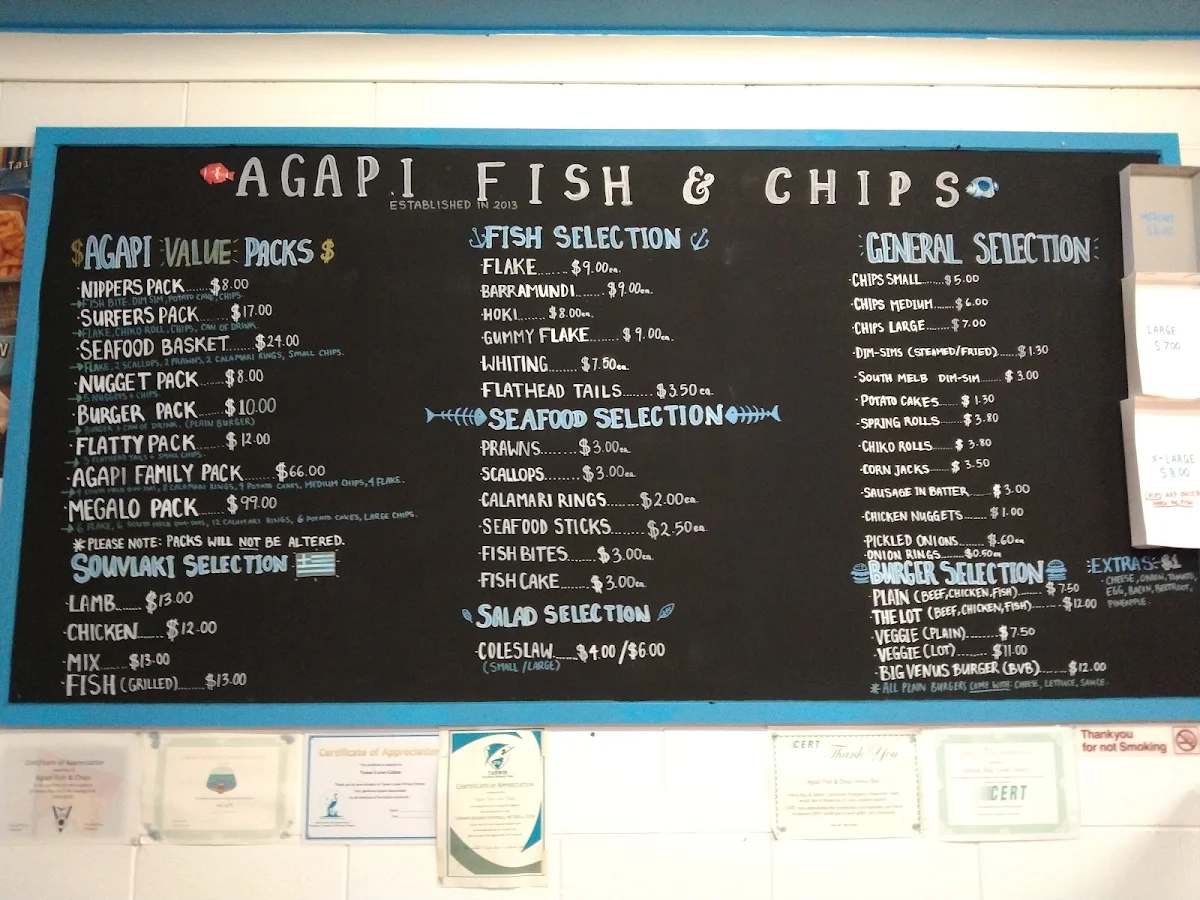 AGAPI FISH & CHIPS
ESTABLISHED IN 2013
$AGAPI VALUE PACKS $
·NIPPERS PACK......$8.00
→FISH BITE, DIM SIM, POTATO CAKE, CHIPS.
·SURFERS PACK......$17.00
→FLAKE, CHIKO ROLL, CHIPS, CAN OF DRINK.
·SEAFOOD BASKET......$24.00
→FLAKE, 2 SCALLOPS, 2 PRAWNS, 2 CALAMARI RINGS, SMALL CHIPS.
·NUGGET PACK......$8.00
→5 NUGGETS + CHIPS.
·BURGER PACK......$10.00
→BURGER & CAN OF DRINK. (PLAIN BURGER)
·FLATTY PACK......$12.00
→3 FLATHEAD TAILS + SMALL CHIPS.
·AGAPI FAMILY PACK......$66.00
CALAMARI RINGS, 4 POTATO CAKES, MEDIUM CHIPS, 4 FLAKE.
·MEGALO PACK......$99.00
→6 FLAKE, 6 SOUTH MELB DIM-SIMS, 12 CALAMARI RINGS, 6 POTATO CAKES, LARGE CHIPS.
*PLEASE NOTE: PACKS WILL NOT BE ALTERED.
SOUVLAKI SELECTION
·LAMB......$13.00
·CHICKEN......$12.00
·MIX......$13.00
·FISH (GRILLED)......$13.00
FISH SELECTION
·FLAKE......$9.00ea.
·BARRAMUNDI......$9.00ea.
·HOKI......$8.00ea.
·GUMMY FLAKE......$9.00ea.
·WHITING......$7.50ea.
·FLATHEAD TAILS......$3.50ea.
SEAFOOD SELECTION
·PRAWNS......$3.00ea.
·SCALLOPS......$3.00ea.
·CALAMARI RINGS......$2.00ea.
·SEAFOOD STICKS......$2.50ea.
·FISH BITES......$3.00ea.
·FISH CAKE......$3.00ea.
SALAD SELECTION
·COLESLAW......$4.00/$6.00
(SMALL/LARGE)
GENERAL SELECTION
·CHIPS SMALL......$5.00
·CHIPS MEDIUM......$6.00
·CHIPS LARGE......$7.00
·DIM-SIMS (STEAMED/FRIED)......$1.30
·SOUTH MELB DIM-SIM......$3.00
·POTATO CAKES......$1.30
·SPRING ROLLS......$3.80
·CHIKO ROLLS......$3.80
·CORN JACKS......$3.50
·SAUSAGE IN BATTER......$3.00
·CHICKEN NUGGETS......$1.00
·PICKLED ONIONS......$.60ea
·ONION RINGS......$0.50ea
BURGER SELECTION
·PLAIN (BEEF, CHICKEN, FISH)......$7.50
·THE LOT (BEEF, CHICKEN, FISH)......$12.00
·VEGGIE (PLAIN)......$7.50
·VEGGIE (LOT)......$11.00
·BIG VENUS BURGER (BVB)......$12.00
*ALL PLAIN BURGERS COME WITH: CHEESE, LETTUCE, SAUCE.
EXTRAS-$1
·CHEESE, ONION, TOMATO,
EGG, BACON, BEETROOT,
PINEAPPLE.
MEDIUM
$6.00
LARGE
$7.00
X-LARGE
$8.00
Certificate of Appreciation
Agapi Fish & Chips
Certificate of Appreciation
CERTIFICATE OF APPRECIATION
CERT Thank You
Agapi Fish & Chips
CERT
Thankyou
for not Smoking